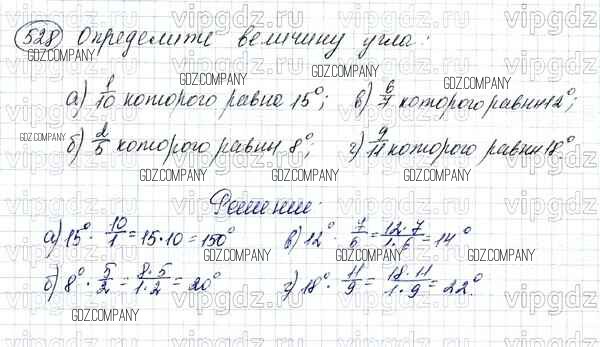 528 Определите величину угла:
а) 1/10 которого равна 15°; в) 6/7 которого равны 12°;
б) 2/5 которого равны 8°; г) 9/11 которого равны 18°.
Решение:
а) 15° · 10/1 = 15·10 = 150° в) 12° · 7/6 = 12·7/1·6 = 14°
б) 8° · 5/2 = 8·5/1·2 = 20° г) 18° · 11/9 = 18·11/1·9 = 22°.
vipgdz.ru
GDZ.COMPANY